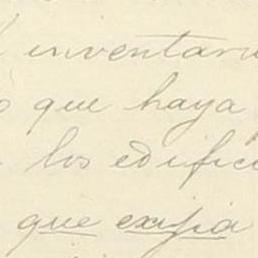 l inventari
o que haya
los edifici
que exija